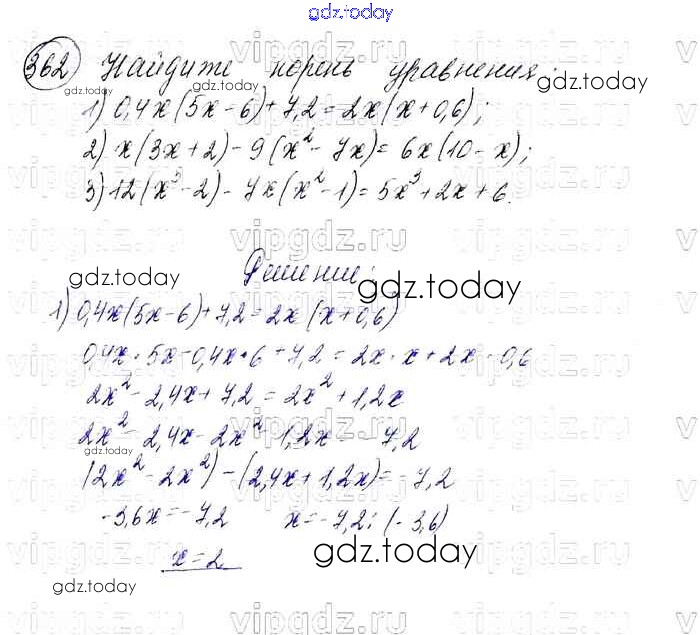 gdz.today
362 Найдите корень уравнения:
1) 0,4x(5x-6)+7,2=2x(x+0,6);
2) x(3x+2)-9(x²-7x)=6x(10-x);
3) 12(x³-2)-7x(x²-1)=5x³+2x+6.
Решение:
1) 0,4x(5x-6)+7,2=2x(x+0,6)
0,4x·5x-0,4x·6+7,2=2x·x+2x·0,6
2x²-2,4x+7,2=2x²+1,2x
2x²-2,4x-2x²-1,2x=-7,2
(2x²-2x²)-(2,4x+1,2x)=-7,2
-3,6x=-7,2 x=-7,2:(-3,6)
x=2
gdz.today
gdz.today
gdz.today
gdz.today
gdz.today
gdz.today
gdz.today
gdz.today
vipgdz.ru